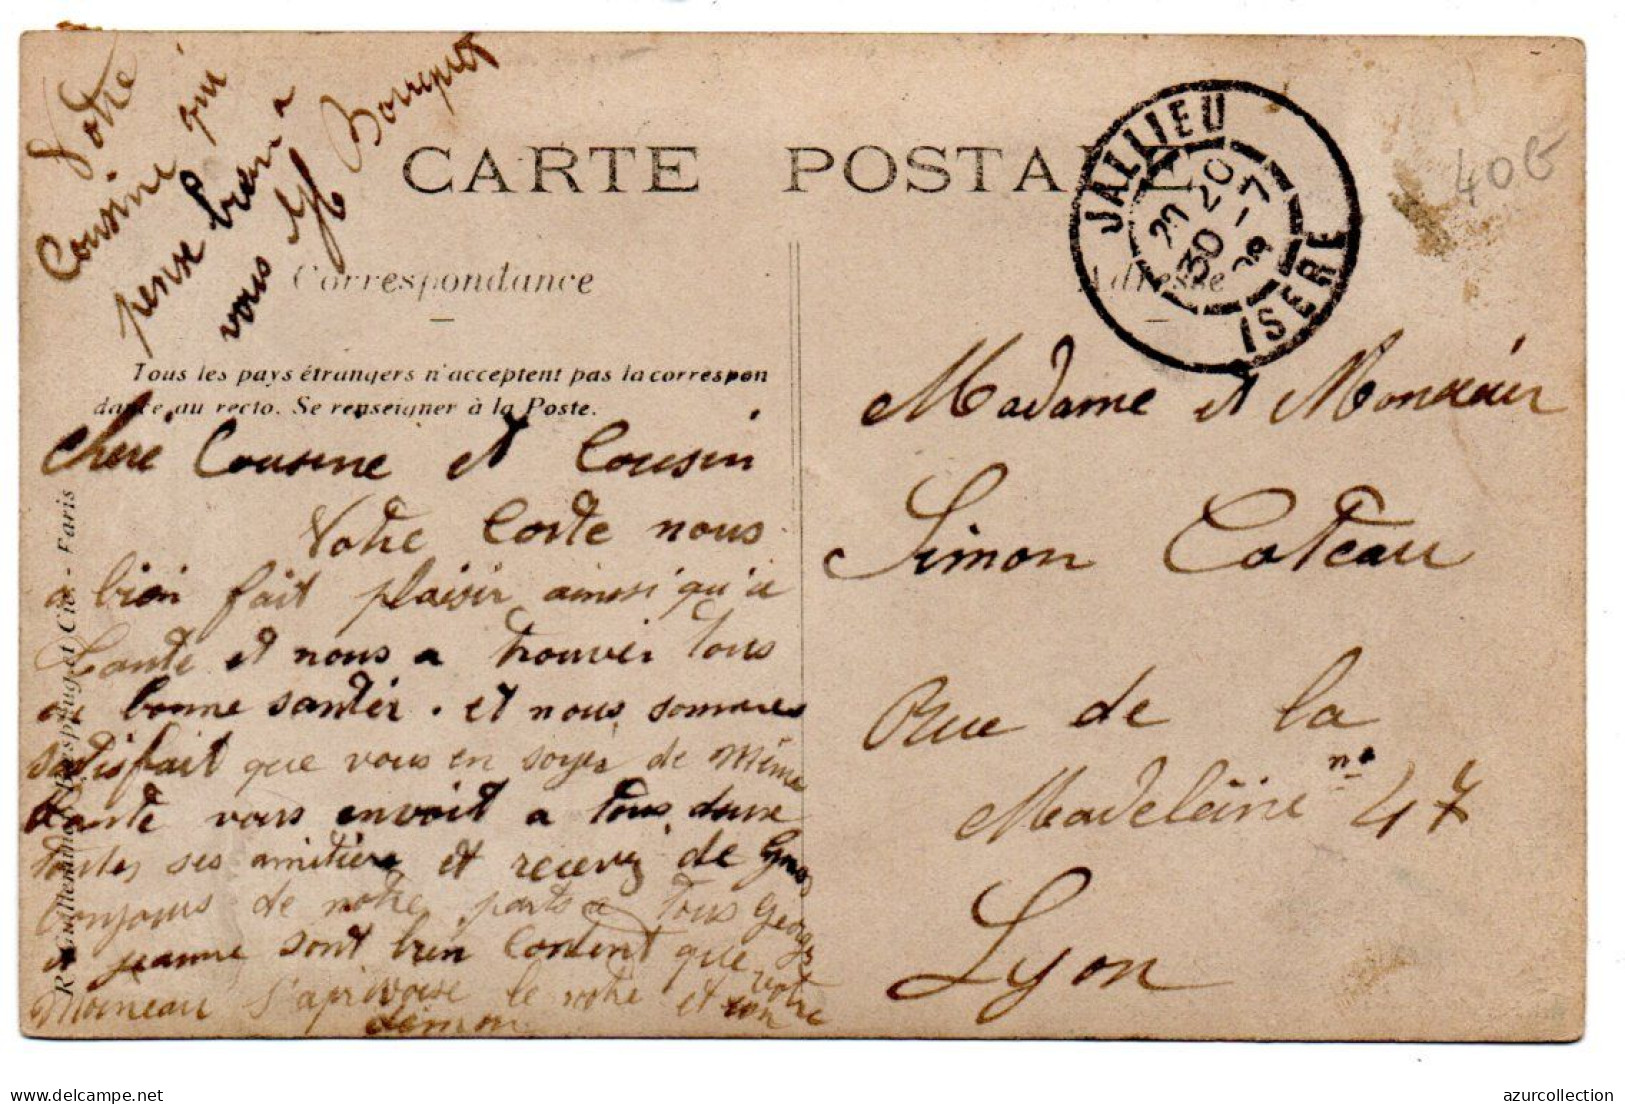 Votre
Cousine qui
pense bien a
vous
CARTE POSTALE
Correspondance
Adresse
Tous les pays étrangers n'acceptent pas la correspon
dance au recto. Se renseigner à la Poste.
JALLIEU
20 20
30 -7
09
ISERE
40€
Chere Cousine et Cousin
Votre Carte nous
a bien fait plaisir ainssi qu'a
Tante et nous a trouver tous
en bonne santer. et nous sommes
satisfait que vous en soyer de même
tante vous envoit a tous dune
toutes ses amitiers et recevez de Gros
bonjours de notre parts a tous Georges
et jeanne sont bien content que votre
Moineau s'aprivoise le notre et
R. Guilleminot, Bœspflug et Cie. - Paris
Madame et Monsieur
Simon Coteau
Rue de la
Madeleine no 47
Lyon
azurcollection